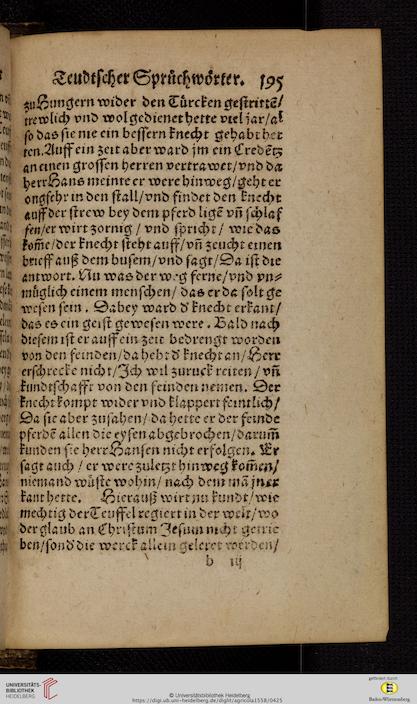 Teudtscher Sprüchwörter. 195
zu Hungern wider den Türcken gestrittē/
trewlich vnd wol gedienet hette viel jar/al
so das sie nie ein bessern knecht gehabt het
ten. Auff ein zeit aber ward jm ein Credētz
an einen grossen herren vertrawet/vnd da
herr Hans meinte er were hinweg/geht er
ongfehr in den stall/vnd findet den knecht
auff der strew bey dem pferd ligē vn̄ schlaf
fen/er wirt zornig / vnd spricht / wie das
kom̄e/der knecht steht auff/vn̄ zeucht einen
brieff auß dem busem/vnd sagt/Da ist die
antwort. Nu was der weg ferne/vnd vn⸗
müglich einem menschen/ das er da solt ge
wesen sein. Dabey ward d' knecht erkant/
das es ein geist gewesen were. Bald nach
diesem ist er auff ein zeit bedrengt worden
von den feinden/da hebt d' knecht an/Herr
erschrecke nicht/Ich wil zuruck reiten/ vn̄
kundtschafft von den feinden nemen. Der
knecht kompt wider vnd klappert feintlich/
Da sie aber zusahen/da hette er der feinde
pferdē allen die eysen abgebrochen/darum̄
kunden sie herr Hansen nicht erfolgen. Er
sagt auch / er were zuletzt hinweg kom̄en/
niemand wüste wohin/ nach dem mā jn er
kant hette. Hierauß wirt nu kundt/wie
mechtig der Teuffel regiert in der welt/wo
der glaub an Christum Jesum nicht getrie
ben/sond' die werck allein geleret werden/
b iij
UNIVERSITÄTS-
BIBLIOTHEK
HEIDELBERG
© Universitätsbibliothek Heidelberg
https://digi.ub.uni-heidelberg.de/diglit/agricola1558/0425
gefördert durch
Baden-Württemberg